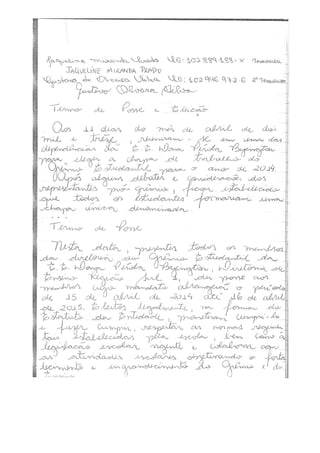 Jaqueline Miranda Prado RG: 102.989.189-X Tesoureira
JAQUELINE MIRANDA PRADO
Gustavo de Oliveira RG: 102946 972-6 2º Tesoureiro
Gustavo Oliveira
Termo de Posse e Eleição
Aos 11 dias do mês de abril de dois
mil e treze, reuniram-se em uma das
dependências da E.E. Dona Pérola Byington
para eleger a chapa de trabalho do
Grêmio Estudantil para o ano de 2014.
Após alguns debates e considerações dos
representantes pró-grêmio, ficou estabelecido
que todos os estudantes formariam uma
chapa única denominada
....
Termo de Posse
Nesta data, presentes todos os membros
da diretoria do Grêmio Estudantil da
E.E. Dona Pérola Byington, Diretoria de
Ensino Região Sul 1, deu posse aos
membros cujo mandato abrangerá o período
de 15 de abril de 2014 até 16 de abril
de 2015. Eleitos legalmente, na forma do
Estatuto da Entidade, prometeram cumpri-lo
e fazer cumprir, respeitar as normas regimen
tais estabelecidas pela escola, bem como a
legislação escolar vigente e colaborar com
as atividades escolares objetivando o forta
lecimento e engrandecimento do Grêmio e da